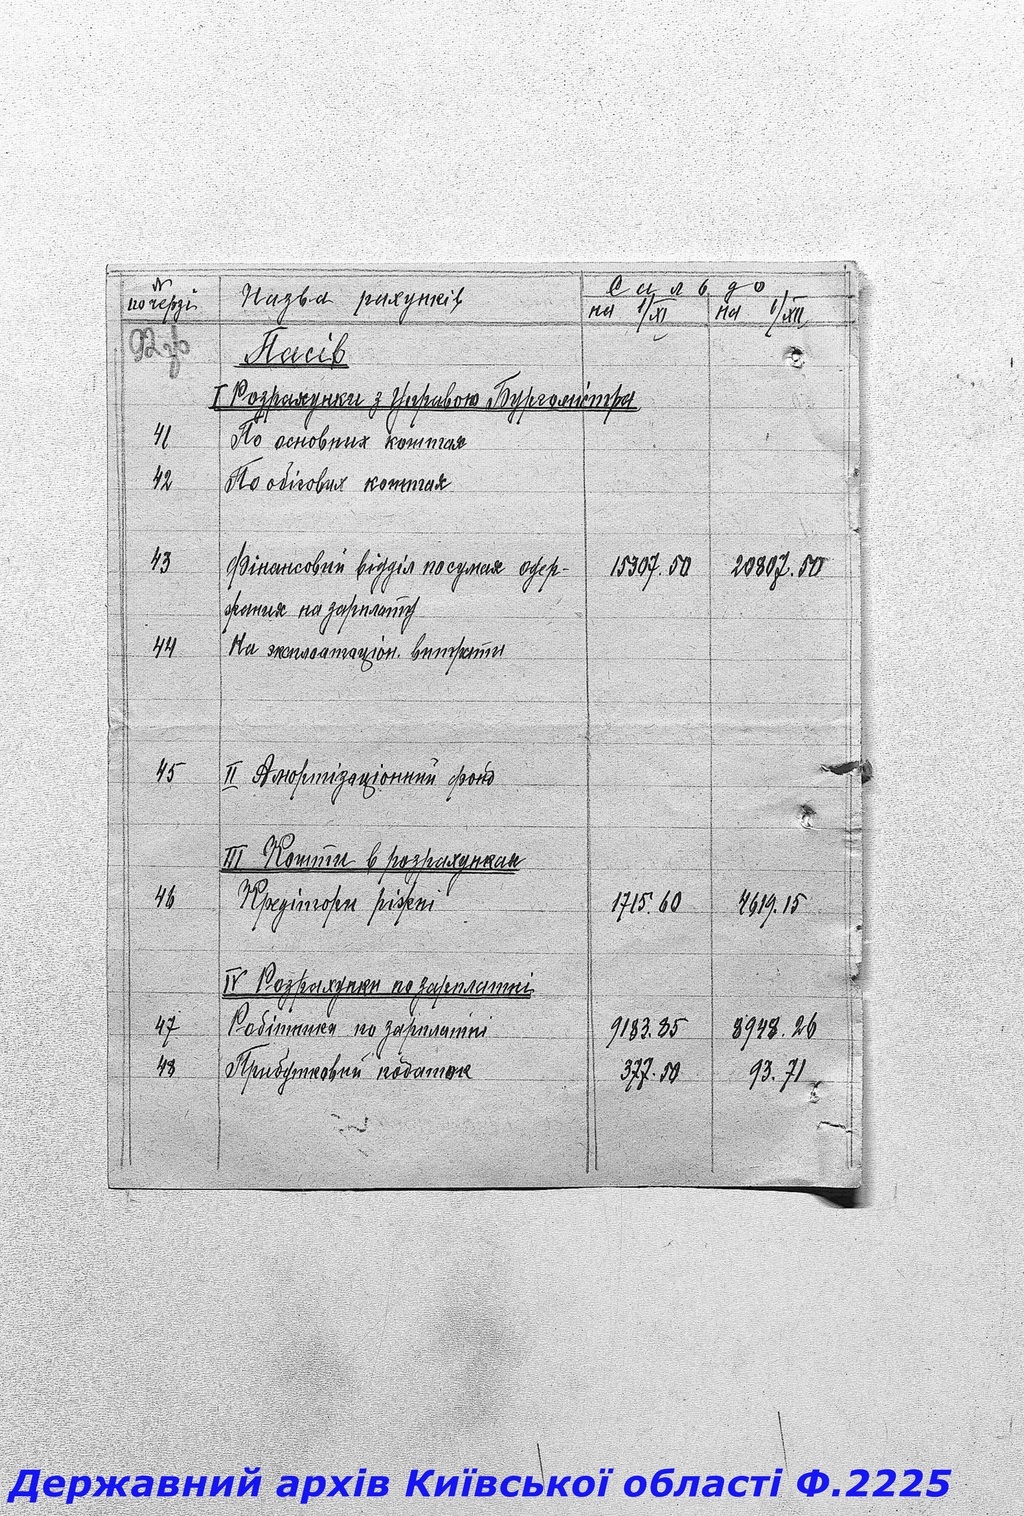 № по черзі Назва рахунків Сальдо
на 1/XI на 1/XII
92 зв
Пасів
I Розрахунки з Управою Бургомістра
41 По основних коштах
42 По обігових коштах
43 Фінансовий відділ по сумах одер- 15307.50 20807.50
жаних на зарплату
44 На эксплоатаціон. витрати
45 II Амортізаціонний фонд
III Кошти в розрахунках
46 Кредітори ріжні 1715.60 4619.15
IV Розрахунки по зарплатні
47 Робітники по зарплатні 9183.85 8948.26
48 Прибутковий податок 377.50 93.71
Державний архів Київської області Ф.2225